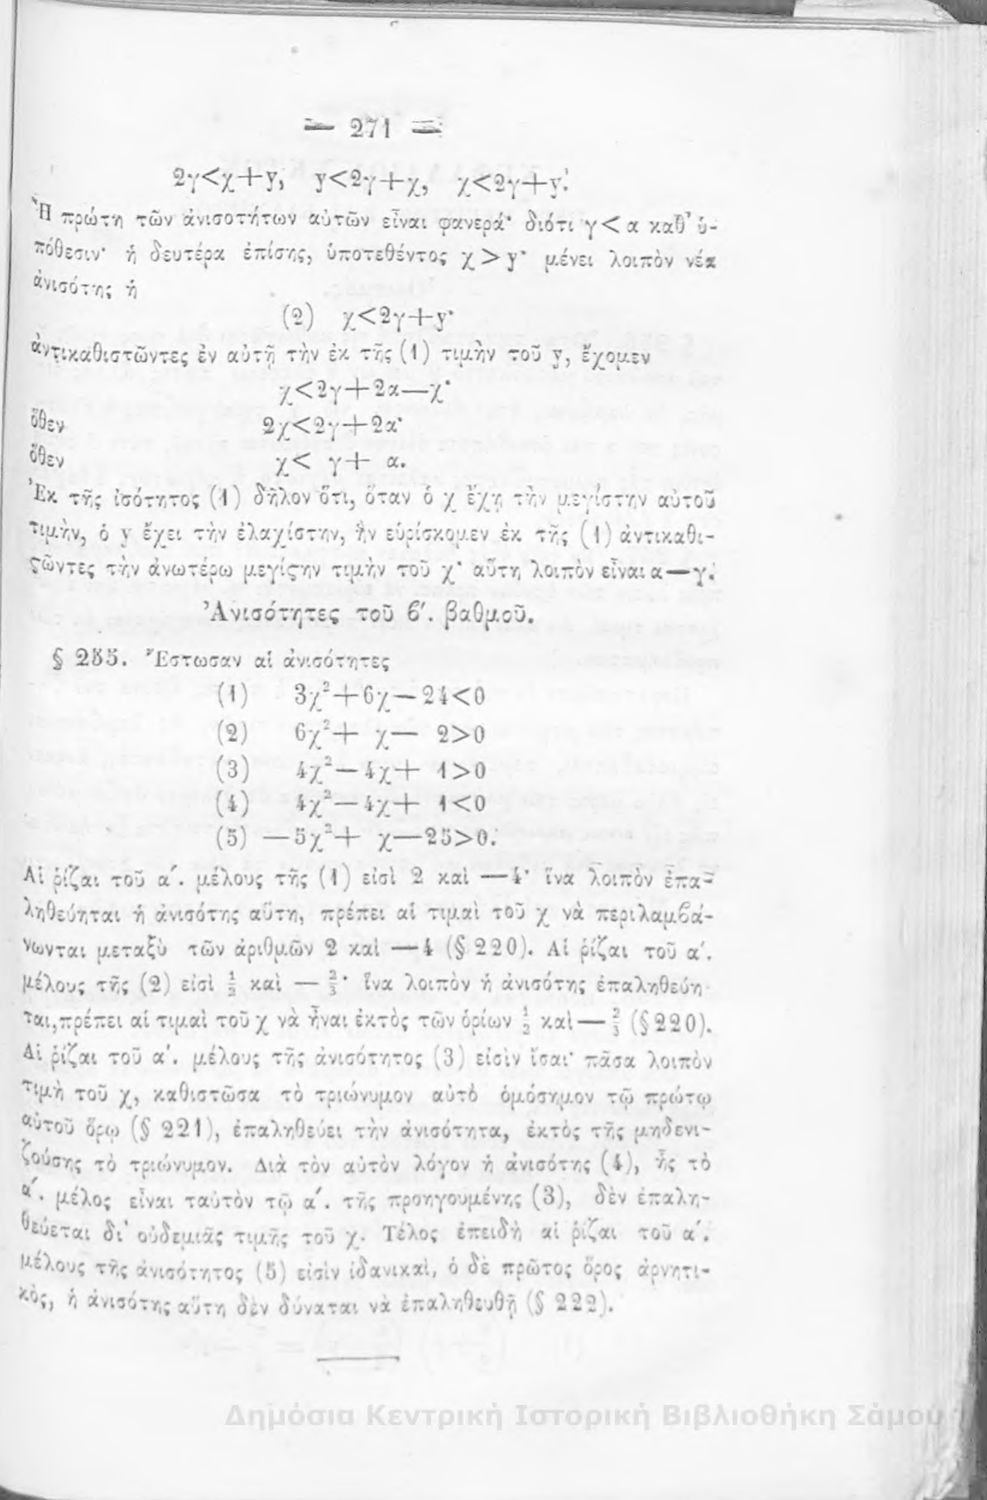 — 271 —
2γ<χ+y, y<2γ+χ, χ<2γ+y.
Ἡ πρώτη τῶν ἀνισοτήτων αὐτῶν εἶναι φανερά· διότι γ<α καθ' ὑ-
πόθεσιν· ἡ δευτέρα ἐπίσης, ὑποτεθέντος χ>y· μένει λοιπὸν νέα
ἀνισότης ἡ
(2) χ<2γ+y·
ἀντικαθιστῶντες ἐν αὐτῇ τὴν ἐκ τῆς (1) τιμὴν τοῦ y, ἔχομεν
χ<2γ+2α—χ·
ὅθεν 2χ<2γ+2α·
ὅθεν χ< γ+ α.
Ἐκ τῆς ἰσότητος (1) δῆλον ὅτι, ὅταν ὁ χ ἔχῃ τὴν μεγίστην αὐτοῦ
τιμὴν, ὁ y ἔχει τὴν ἐλαχίστην, ἣν εὑρίσκομεν ἐκ τῆς (1) ἀντικαθι-
ςῶντες τὴν ἀνωτέρω μεγίςην τιμὴν τοῦ χ· αὕτη λοιπὸν εἶναι α—γ.
Ἀνισότητες τοῦ ϐ'. βαθμοῦ.
§ 255. Ἔστωσαν αἱ ἀνισότητες
(1) 3χ²+6χ—24<0
(2) 6χ²+ χ— 2>0
(3) 4χ²—4χ+ 1>0
(4) 4χ²—4χ+ 1<0
(5) —5χ²+ χ—25>0.
Αἱ ῥίζαι τοῦ α'. μέλους τῆς (1) εἰσὶ 2 καὶ —4· ἵνα λοιπὸν ἐπα-
ληθεύηται ἡ ἀνισότης αὕτη, πρέπει αἱ τιμαὶ τοῦ χ νὰ περιλαμϐά-
νωνται μεταξὺ τῶν ἀριθμῶν 2 καὶ —4 (§ 220). Αἱ ῥίζαι τοῦ α'.
μέλους τῆς (2) εἰσὶ ½ καὶ — ⅔· ἵνα λοιπὸν ἡ ἀνισότης ἐπαληθεύη-
ται, πρέπει αἱ τιμαὶ τοῦ χ νὰ ἦναι ἐκτὸς τῶν ὁρίων ½ καὶ — ⅔ (§ 220).
Αἱ ῥίζαι τοῦ α'. μέλους τῆς ἀνισότητος (3) εἰσὶν ἴσαι· πᾶσα λοιπὸν
τιμὴ τοῦ χ, καθιστῶσα τὸ τριώνυμον αὐτὸ ὁμόσημον τῷ πρώτῳ
αὐτοῦ ὅρῳ (§ 221), ἐπαληθεύει τὴν ἀνισότητα, ἐκτὸς τῆς μηδενι-
ζούσης τὸ τριώνυμον. Διὰ τὸν αὐτὸν λόγον ἡ ἀνισότης (4), ἧς τὸ
α'. μέλος εἶναι ταὐτὸν τῷ α'. τῆς προηγουμένης (3), δὲν ἐπαλη-
θεύεται δι' οὐδεμιᾶς τιμῆς τοῦ χ. Τέλος ἐπειδὴ αἱ ῥίζαι τοῦ α'.
μέλους τῆς ἀνισότητος (5) εἰσὶν ἰδανικαὶ, ὁ δὲ πρῶτος ὅρος ἀρνητι-
κὸς, ἡ ἀνισότης αὕτη δὲν δύναται νὰ ἐπαληθευθῇ (§ 222).
Δημόσια Κεντρική Ιστορική Βιβλιοθήκη Σάμου